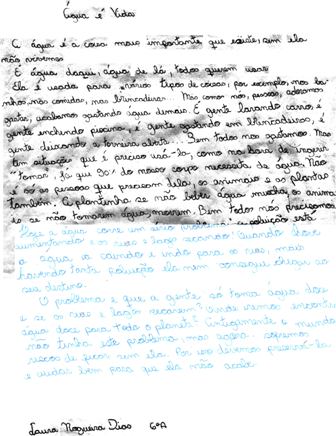 Água é Vida
A água é a coisa mais importante que existe, sem ela
não vivemos
É água daqui, água de lá, todos querem usar
Ela é usada para vários tipos de coisas, por exemplo, nos ba-
nhos, nas comidas, nas brincadeiras. Mas como nós, pessoas, adoramos
gastar, acabamos gastando água demais. É gente lavando carro, é
gente enchendo piscina, é gente gastando em brincadeiras, é
gente deixando a torneira aberta. Bem todos nós gastamos. Mas
tem situação que é preciso usá-la, como na hora de ingerir
"Tomar", já que 80% do nosso corpo necessita de água. Não
é só as pessoas que precisam dela, os animais e as plantas
também. A plantinha se não beber água murcha, os anima-
is se não tomarem água, morrem. Bem todos nós precisamos
Hoje a água corre um sério a poluição está
aumentando e os rios e lagos secando. Quando chove
a água ia caindo e indo para os rios, mais
havendo tanta poluição ela nem consegue chegar ao
seu destino.
O problema é que a gente só toma água doce
e se os rios e lagos secarem? Onde vamos encontrar
água doce para todo o planeta? Antigamente o mundo
não tinha este problema, mas agora corremos
riscos de ficar sem ela. Por isso devemos preservá-la
e cuidar bem para que ela não acabe.
Laura Nogueira Dias 6ºA